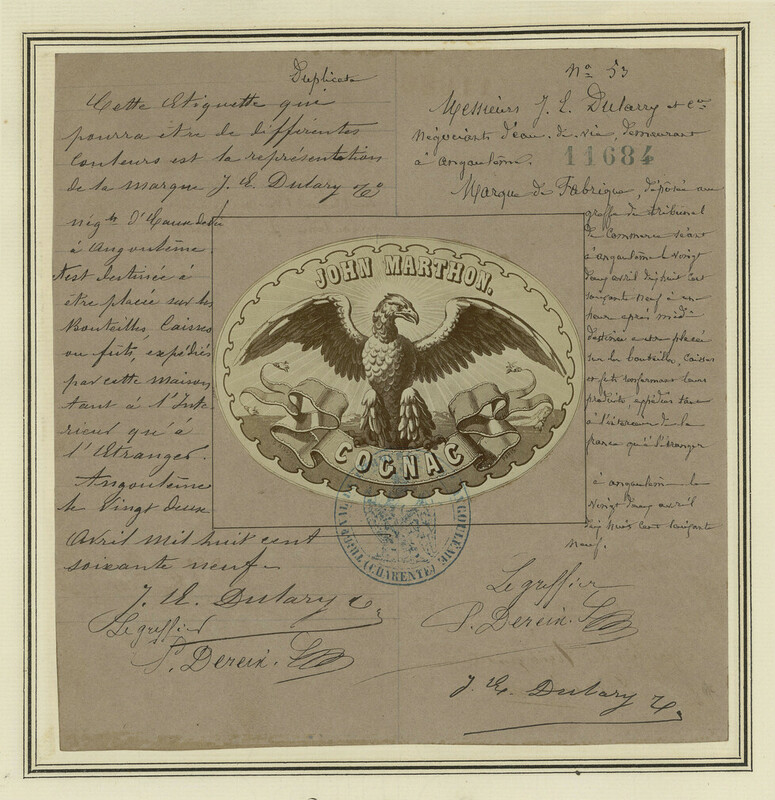 Duplicata
Cette Etiquette qui
pourra être de différentes
couleurs est la représentation
de la marque J. E. Dulary & Co
négts d'Eaux de vie
à Angoulême
Elle est destinée à
être placée sur les
Bouteilles, Caisses
ou futs, expédiés
par cette maison
tant à l'Inté
rieur qu'à
l'Etranger.
Angoulême
le Vingt deux
Avril Mil huit cent
soixante neuf.
J. E. Dulary &
Le greffier
P. Dereix.
No 53
Messieurs J. E. Dulary et Cie
négociants d'eau de vie, demeurant
à angoulême.
11684
Marque de Fabrique, déposée au
greffe du tribunal
de Commerce séant
à angoulême le vingt
deux avril dix huit cent
soixante neuf à une
heure après midi
destinée a être placée
sur les bouteilles, caisses
et futs renfermant leurs
produits, expédiés tant
à l'intérieur de la
france qu'à l'étranger
à angoulême le
vingt deux avril
dix huit cent soixante
neuf.
Le greffier
P. Dereix.
J. E. Dulary &
JOHN MARTHON.
COGNAC
(CHARENTE)